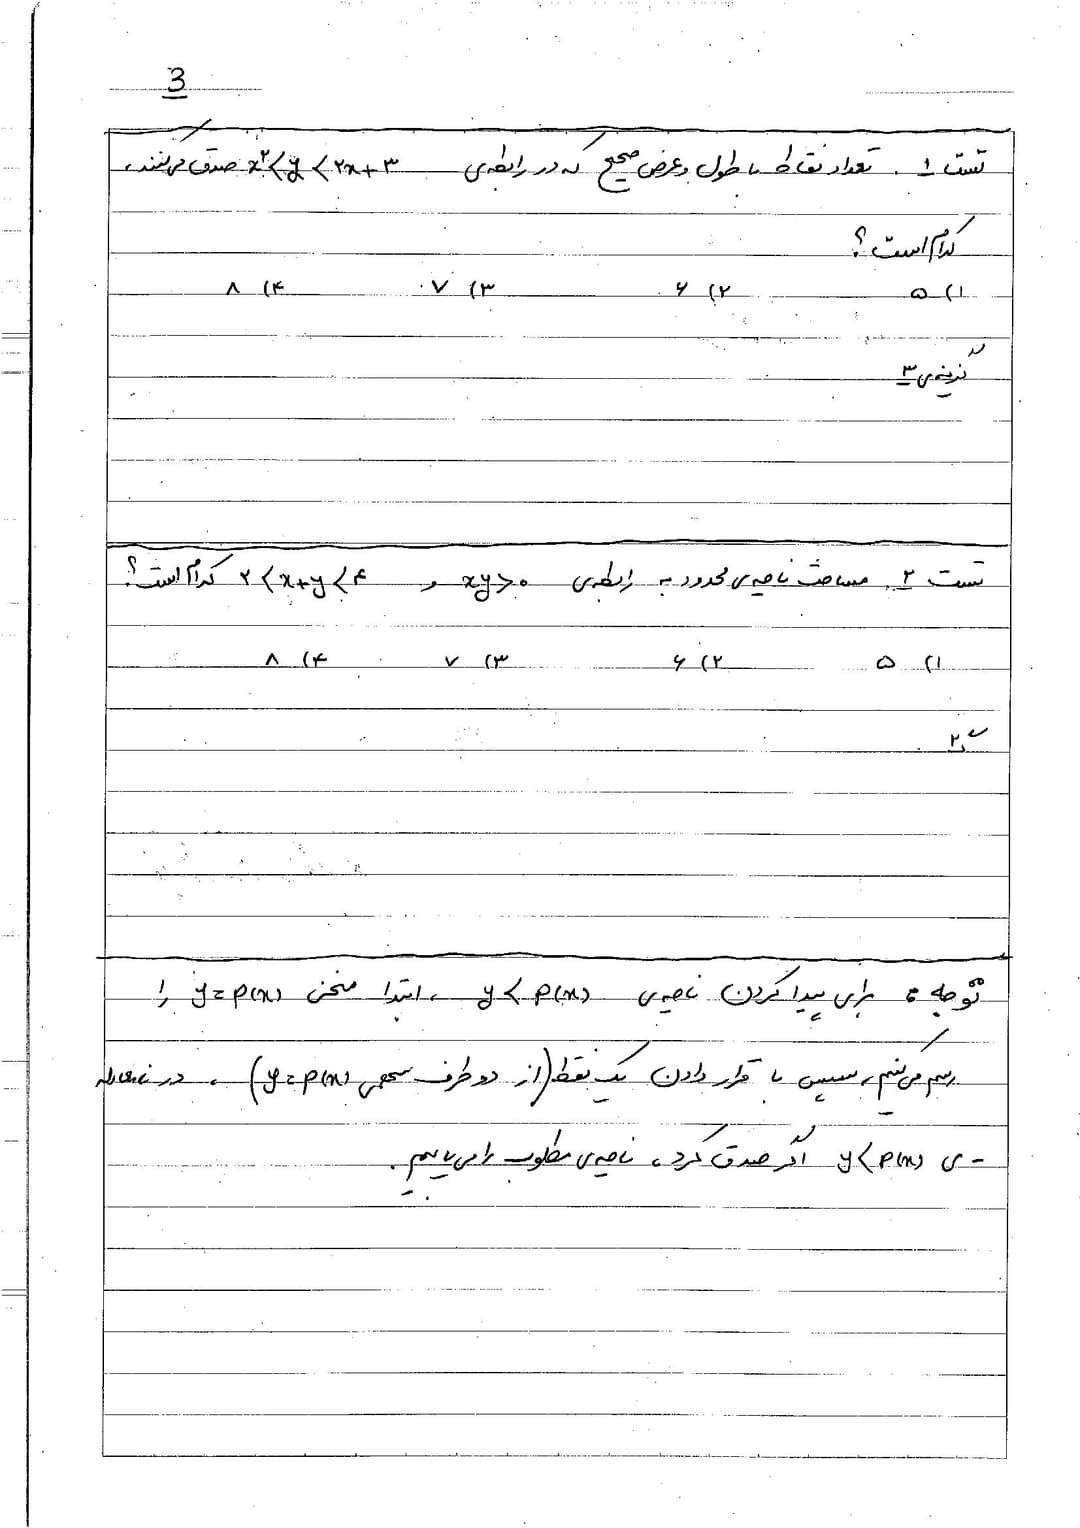 3
تست ۱. تعداد نقاط با طول و عرض صحیح که در رابطه‌ی x² < y < ۲x+۳ صدق می‌کنند،
کدام است؟
۱) ۵ ۲) ۶ ۳) ۷ ۴) ۸
گزینه‌ی ۳
تست ۲. مساحت ناحیه‌ی محدود به رابطه‌ی xy>۰ و ۲<x+y<۴ کدام است؟
۱) ۵ ۲) ۶ ۳) ۷ ۴) ۸
۲
توجه: برای پیدا کردن ناحیه‌ی y<P(x)، ابتدا منحنی y=P(x) را
رسم می‌کنیم، سپس با قرار دادن یک نقطه (از دو طرف منحنی y=P(x))، در نامعادله
-ی y<P(x) اگر صدق کرد، ناحیه‌ی مطلوب را می‌یابیم.